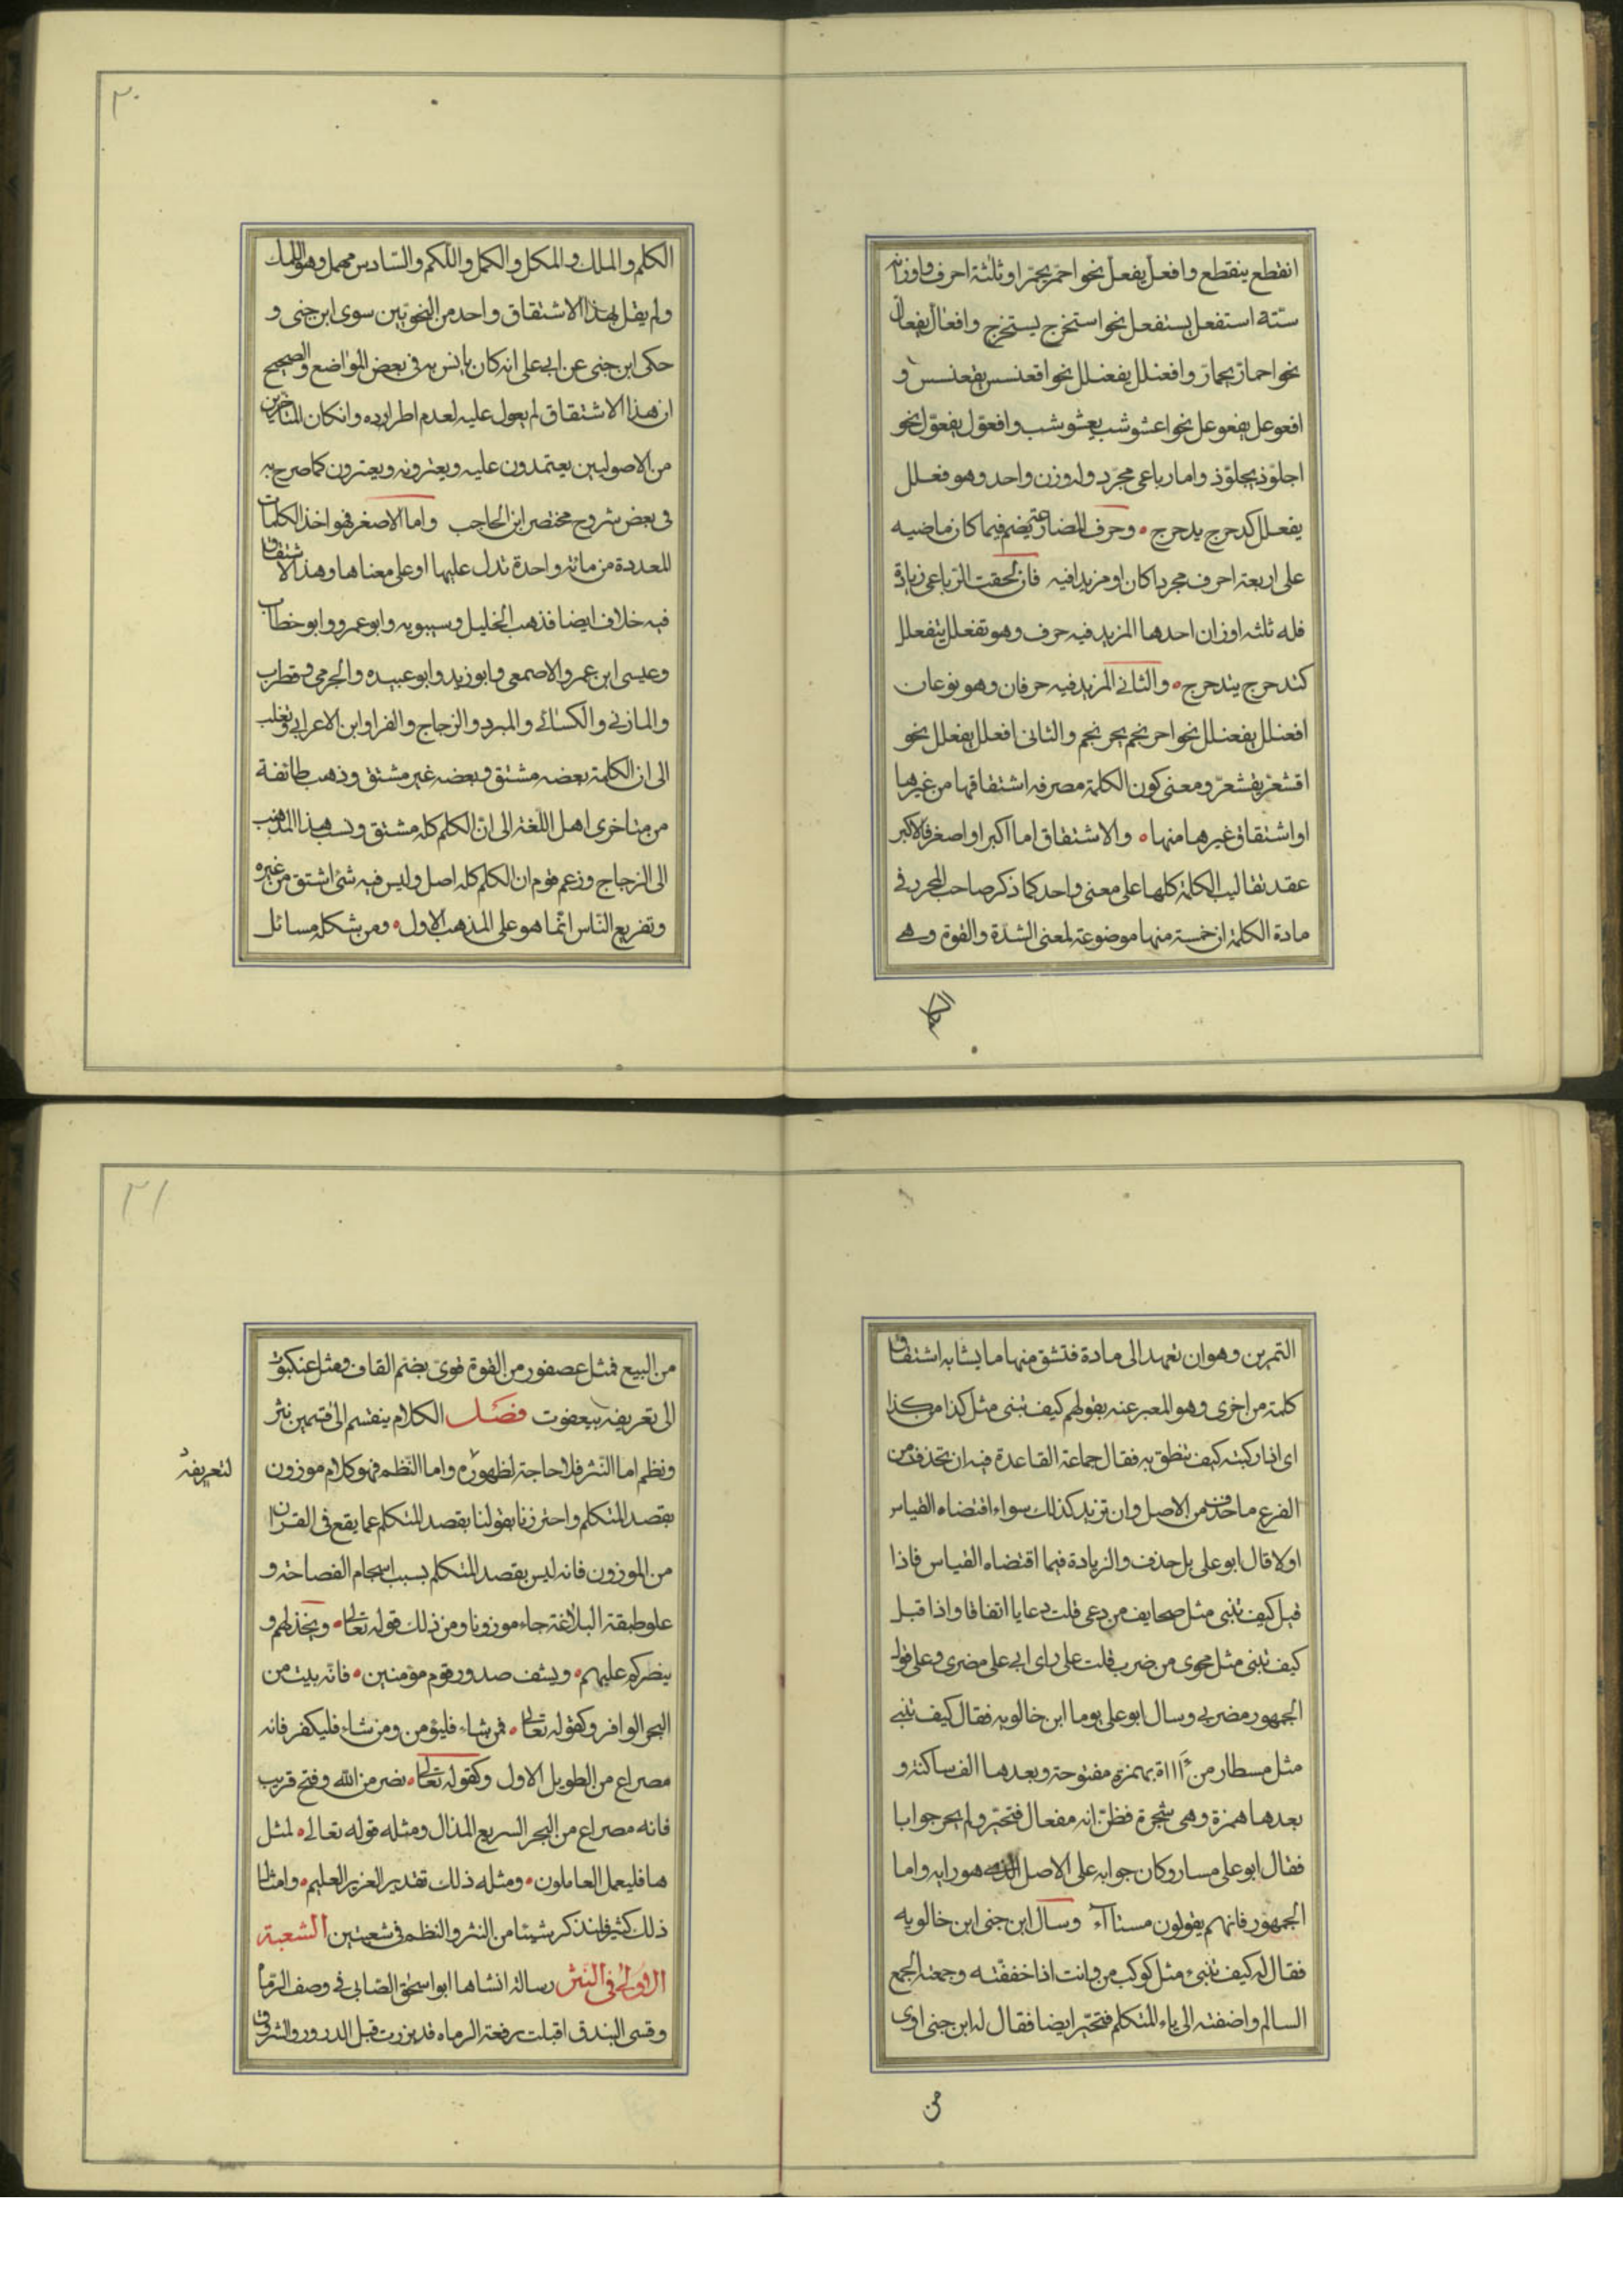 انقطع ينقطع وافعل يفعل نحو احمر يحمر او ثلثة احرف واوزانه
ستة استفعل يستفعل نحو استخرج يستخرج وافعال يفعال
نحو احمار يحمار وافعنلل يفعنلل نحو اقعنسس يقعنسس و
افعوعل يفعوعل نحو اعشوشب يعشوشب وافعول يفعول نحو
اجلوذ يجلوذ واما رباعى مجرد وله وزن واحد وهو فعلل
يفعلل كدحرج يدحرج وحرف المضارعة يضم فيما كان ماضيه
على اربعة احرف مجردا كان او مزيدا فيه فان لحقت الرباعى زيادة
فله ثلثه اوزان احدها المزيد فيه حرف وهو تفعلل يتفعلل
كتدحرج يتدحرج والثانى المزيد فيه حرفان وهو نوعان
افعنلل يفعنلل نحو احرنجم يحرنجم والثانى افعلل يفعلل نحو
اقشعر يقشعر ومعنى كون الكلمة مصرفه اشتقاقها من غيرها
او اشتقاق غيرها منها والاشتقاق اما اكبر او اصغر فالاكبر
عقد تقاليب الكلمة كلها على معنى واحد كما ذكر صاحب المجرد فى
مادة الكلمة ان خمسة منها موضوعة لمعنى الشدة والقوة وهى
الكلم
٢٠
الكلم والملك والمكل والكمل واللكم والسادس مهمل وهو اللمك
ولم يقل بهذا الاشتقاق واحد من النحويين سوى ابن جنى و
حكى ابن جنى عن ابى على انه كان يانس به فى بعض المواضع والصحيح
ان هذا الاشتقاق لم يعول عليه لعدم اطراده وانكان المتاخرين
من الاصوليين يعتمدون عليه ويعتزونه ويعتزون كما صرح به
فى بعض شروح مختصر ابن الحاجب واما الاصغر فهو اخذ الكلمات
المعددة من مادة واحدة تدل عليها او على معناها وهذا الاشتقاق
فيه خلاف ايضا فذهب الخليل وسيبويه وابو عمرو وابو خطاب
وعيسى ابن عمر والاصمعى وابو زيد وابو عبيده والجرمى وقطرب
والمازنى والكسائى والمبرد والزجاج والفرا وابن الاعرابى وثعلب
الى ان الكلمة بعضه مشتق وبعضه غير مشتق وذهب طائفة
من متاخرى اهل اللغة الى ان الكلم كله مشتق ونسب هذا المذهب
الى الزجاج وزعم قوم ان الكلم كله اصل وليس فيه شئ اشتق من غيره
وتفريع الناس انما هو على المذهب الاول ومن شكله مسائل
التمرين وهو ان تعمد الى مادة فتشق منها ما يشابه اشتقاق
كلمة من اخرى وهو المعبر عنه بقولهم كيف تبنى مثل كذا من كذا
اى اذا ركبته كيف تنطق به فقال جماعة القاعدة فيه ان تحذف من
الفرع ما حذف من الاصل وان تزيد كذلك سواء اقتضاه القياس
اولا قال ابو على بل حذف والزيادة فيما اقتضاه القياس فاذا
قيل كيف تبنى مثل صحايف من دعى قلت دعايا اتفاقا واذا قيل
كيف تبنى مثل محوى من ضرب قلت على راى ابى على مضرى وعلى قول
الجمهور مضربى وسال ابو على يوما ابن خالويه فقال كيف تبنى
مثل مسطار من ءااءة بهمزة مفتوحة وبعدها الف ساكنة و
بعدها همزة وهى شجرة فظن انه مفعال فتحير ولم يحر جوابا
فقال ابو على مسار وكان جوابه على الاصل الذى هو رايه واما
الجمهور فانهم يقولون مستااء وسال ابن جنى ابن خالويه
فقال له كيف تبنى مثل كوكب من وانت اذا خففته وجمعته الجمع
السالم واضفته الى ياء المتكلم فتحير ايضا فقال له ابن جنى اوى
من
٢١
من البيع فمثل عصفور من القوة قوى بضم القاف ومثل عنكبوت
الى تعريفه بيعفوت فصل الكلام ينقسم الى قسمين نثر
ونظم اما النثر فلا حاجة لظهوره واما النظم فهو كلام موزون
لتعريفه
بقصد المتكلم واحترزنا بقولنا بقصد المتكلم عما يقع فى القران
من الموزون فانه ليس بقصد المتكلم بسبب انسجام الفصاحة و
علو طبقة البلاغة جاء موزونا ومن ذلك قوله تعالى ويخذلهم و
ينصركم عليهم ويشف صدور قوم مؤمنين فانه بيت من
البحر الوافر وكقوله تعالى فمن شاء فليؤمن ومن شاء فليكفر فانه
مصراع من الطويل الاول وكقوله تعالى نصر من الله وفتح قريب
فانه مصراع من البحر السريع المذال ومثله قوله تعالى لمثل
هذا فليعمل العاملون ومثله ذلك تقدير العزيز العليم وامثال
ذلك كثير فلنذكر شيئا من النثر والنظم فى شعبتين الشعبة
الاولى فى النثر رسالة انشاها ابو اسحق الصابى فى وصف الرماة
وقسى البندق اقبلت رفعة الرماه قد برزت قبل الدرور والشروق